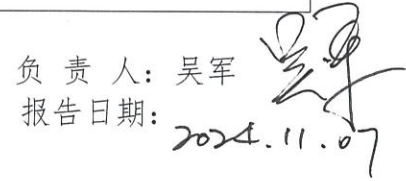 负 责 人：吴军 吴军
报告日期：2024.11.07